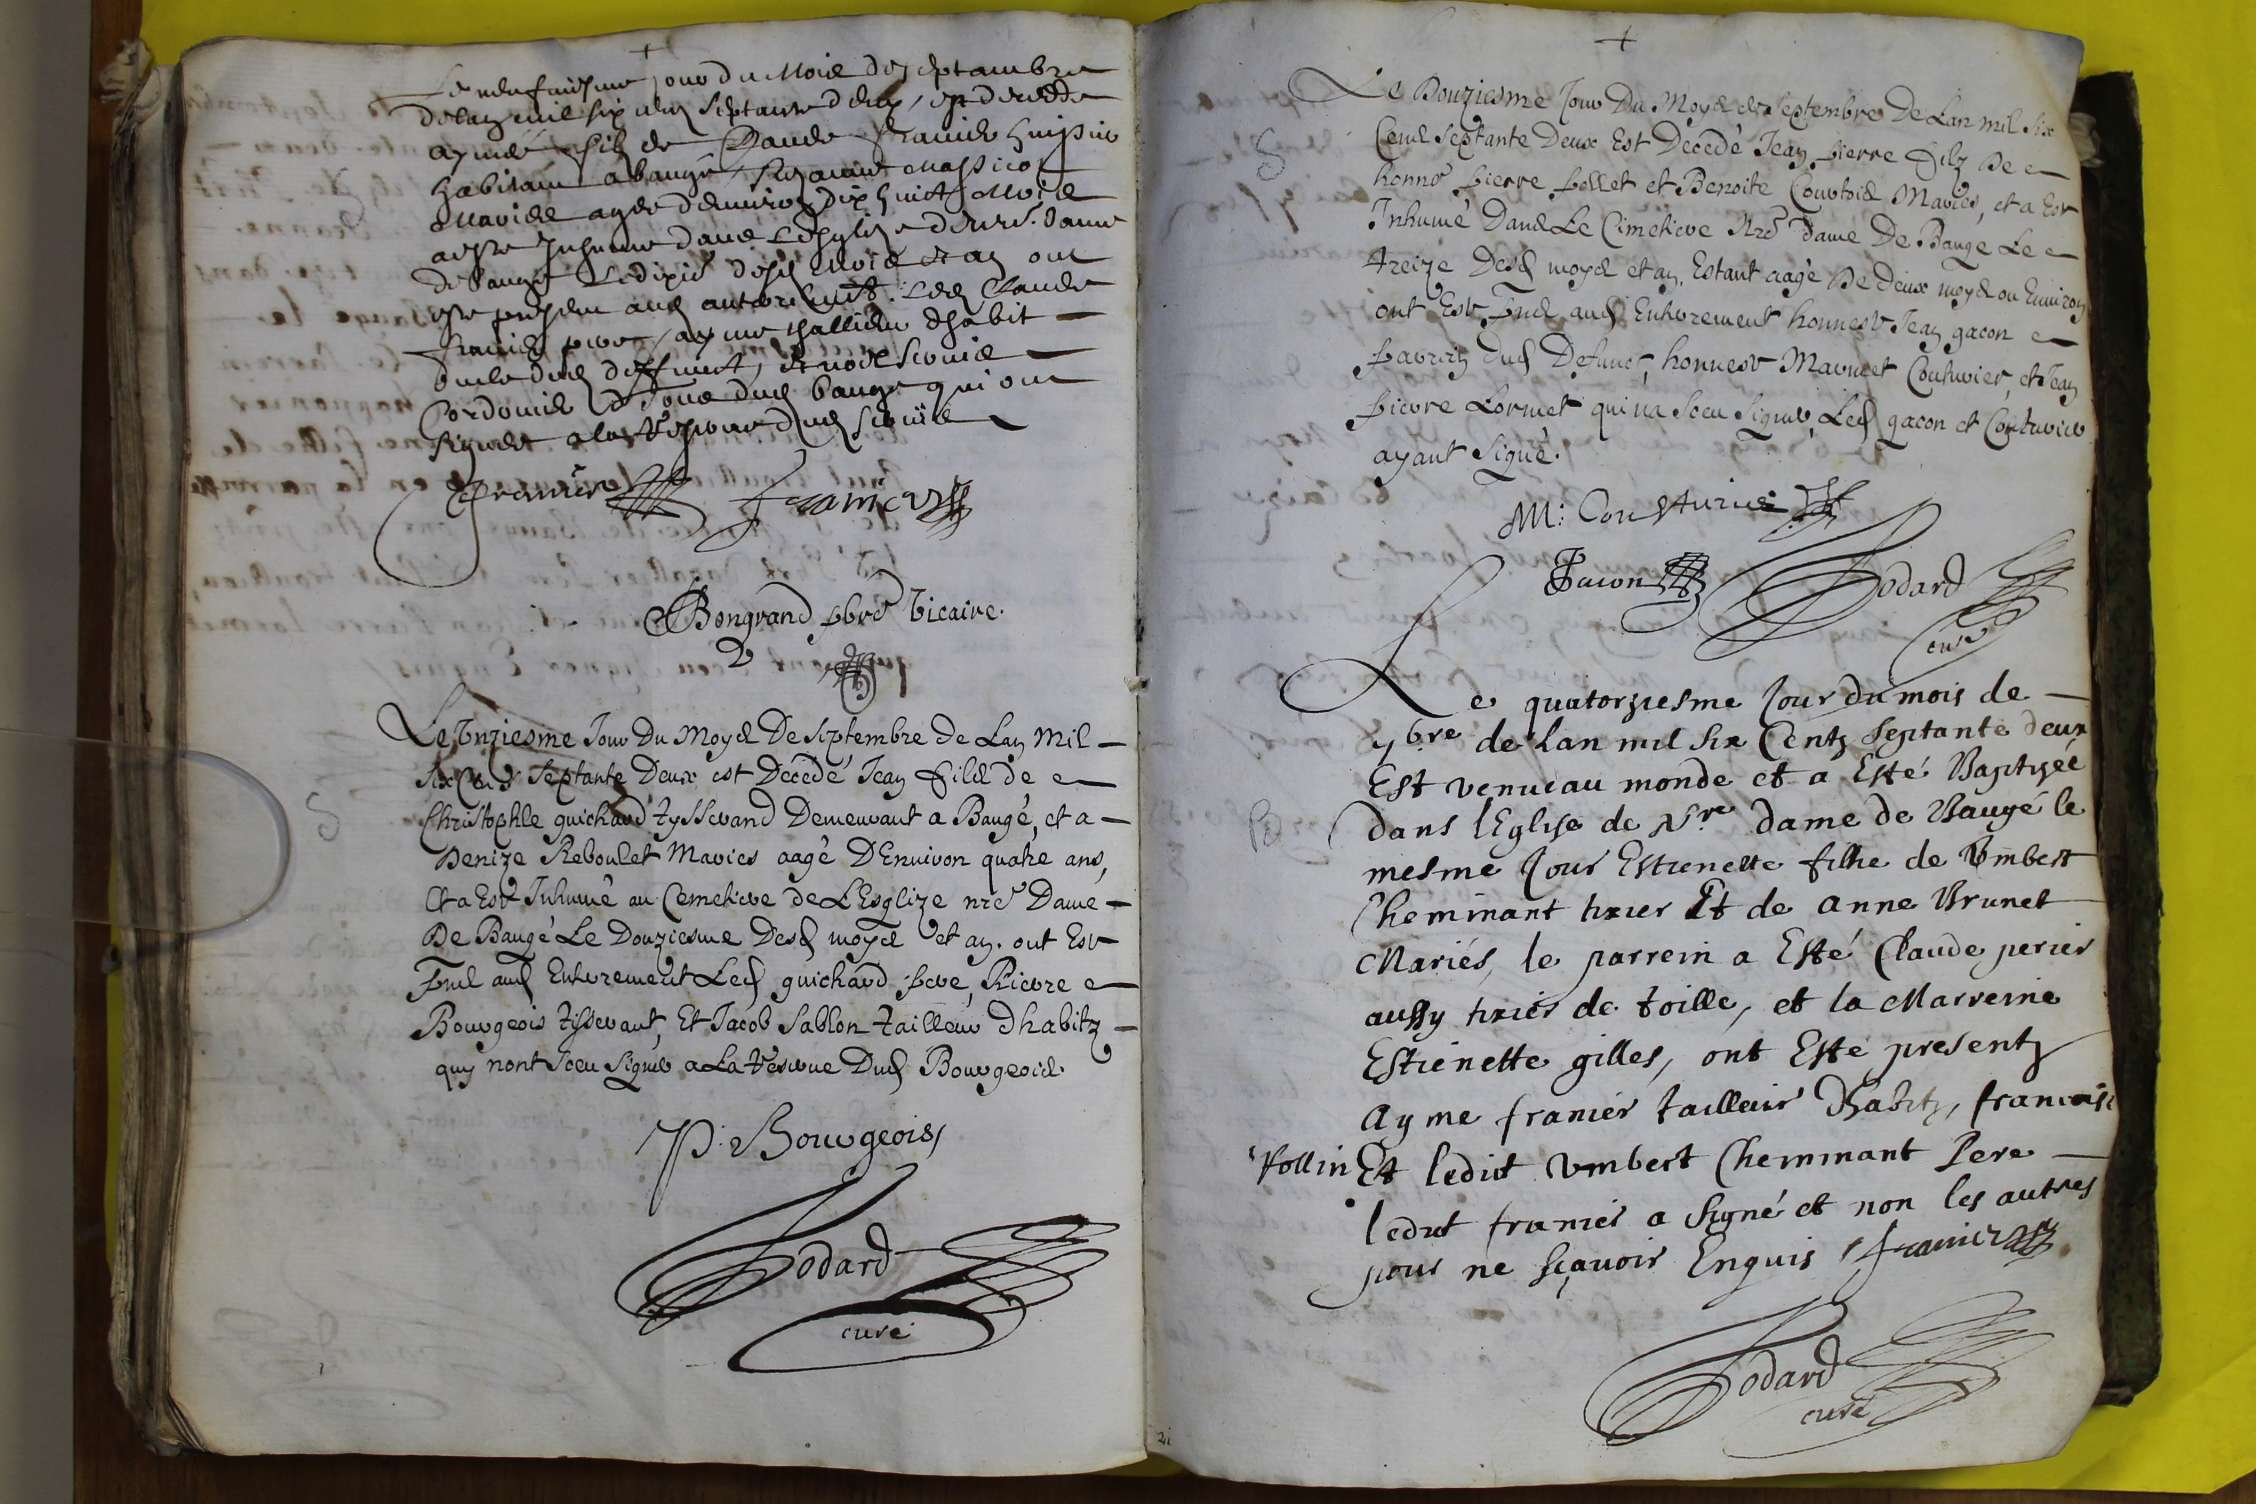 +
Le neufuiesme jour du Mois de septambre
de lan mil six cens septante deux, est decedde
aymé filz de Claude franier huissier
habitant a baugé
Mariés agés denuiron dix huict Mois
a este Inhumé dans Lesglize de nre. dame
de baugé Le dixie desd Mois et an ont
este presens aud enterrement Led Claude
franier pere, ayme
oncle dud deffunct, et
Cordonnier tous dud bauge qui ont
signés a la reserue dud
franier franier
Bongrand pbre Vicaire.
Le Vnziesme Jour Du Moys De Septembre de Lan Mil
Six Cens Septante Deux est Décédé Jean fils de
Christophle guichard tysserand Demeurant a Baugé, et a
Denize Reboulet Maries aagé DEnuiron quatre ans,
Et a Esté Inhumé au Cemetiere de LEsglize nre Dame
De Baugé Le Douziesme Desd moys et an. ont Esté
Pns aud Enterement Led guichard pere, Pierre
Bourgeois tysserant, Et Jacob Sablon tailleur dhabitz
quy nont sceu signer a La reserue Dud Bourgeois
P: Bourgeois
Godard
curé
+
Le Douziesme Jour Du Moys de Septembre De Lan mil six
S
Cens Septante Deux Est Décédé Jean pierre filz De
honne pierre pollet et Benoite Courtois Mariés, et a Esté
Inhumé Dans Le Cimetiere Nre Dame De Baugé Le
treize Desd moys et an, Estant aagé De Deux moys ou Enuiron
ont Esté pns aud Enterement honneste Jean gacon
parrein dud Defunct, honneste Maurice Couturier, et Jean
pierre Lormet qui na sceu signer, Led gacon et Couturier
ayant signé.
M: Cousturier
Gacon Godard
curé
Le quatorziesme Jour du mois de
7bre de Lan mil six Centz septante deux
Est venue au monde et a Esté Baptizée
B
dans lEglise de Nre dame de Baugé le
mesme Jour Estienette filhe de Vmbert
Cheminant tixier Et de anne Brunet
Mariés, le parrein a Esté Claude perier
aussy tixier de toille, et la Marreine
Estienette gilles, ont Esté presentz
Ayme franier tailleur dhabitz, francois
Pollin Et ledict Vmbert Cheminant Pere
ledict franier a signé et non les autres
pour ne sçauoir Enquis franier
Godard
curé